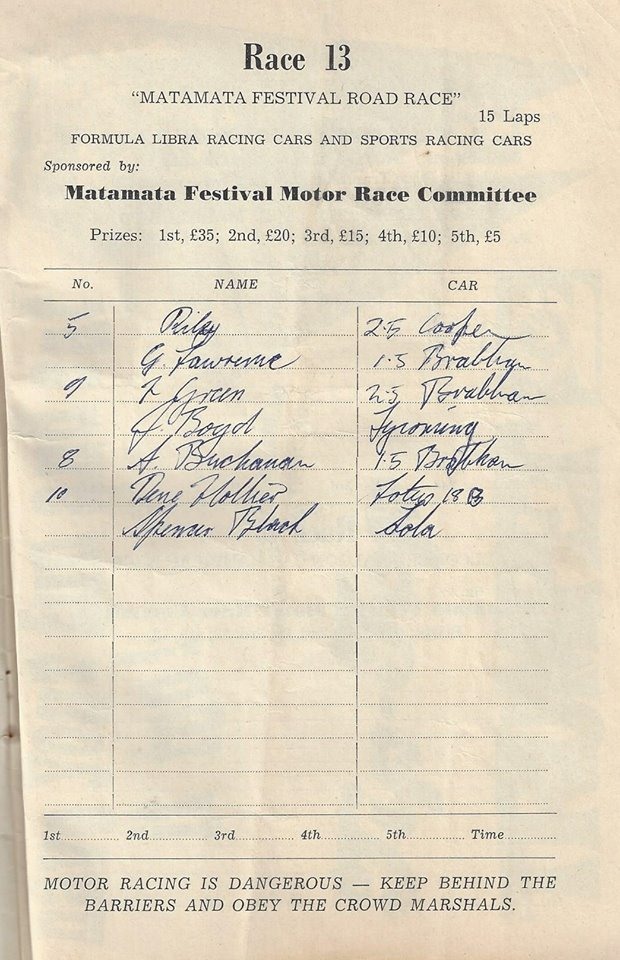 Race 13
"MATAMATA FESTIVAL ROAD RACE"
15 Laps
FORMULA LIBRA RACING CARS AND SPORTS RACING CARS
Sponsored by:
Matamata Festival Motor Race Committee
Prizes: 1st, £35; 2nd, £20; 3rd, £15; 4th, £10; 5th, £5
No. NAME CAR
5 Riley 2.5 Cooper
G. Lawrence 1.5 Brabham
9 Green 2.5 Brabham
J. Boyd Lycoming
8 A. Buchanan 1.5 Brabham
10 Dene Hollier Lotus 18 B
Spencer Black Lola
1st 2nd 3rd 4th 5th Time
MOTOR RACING IS DANGEROUS — KEEP BEHIND THE
BARRIERS AND OBEY THE CROWD MARSHALS.